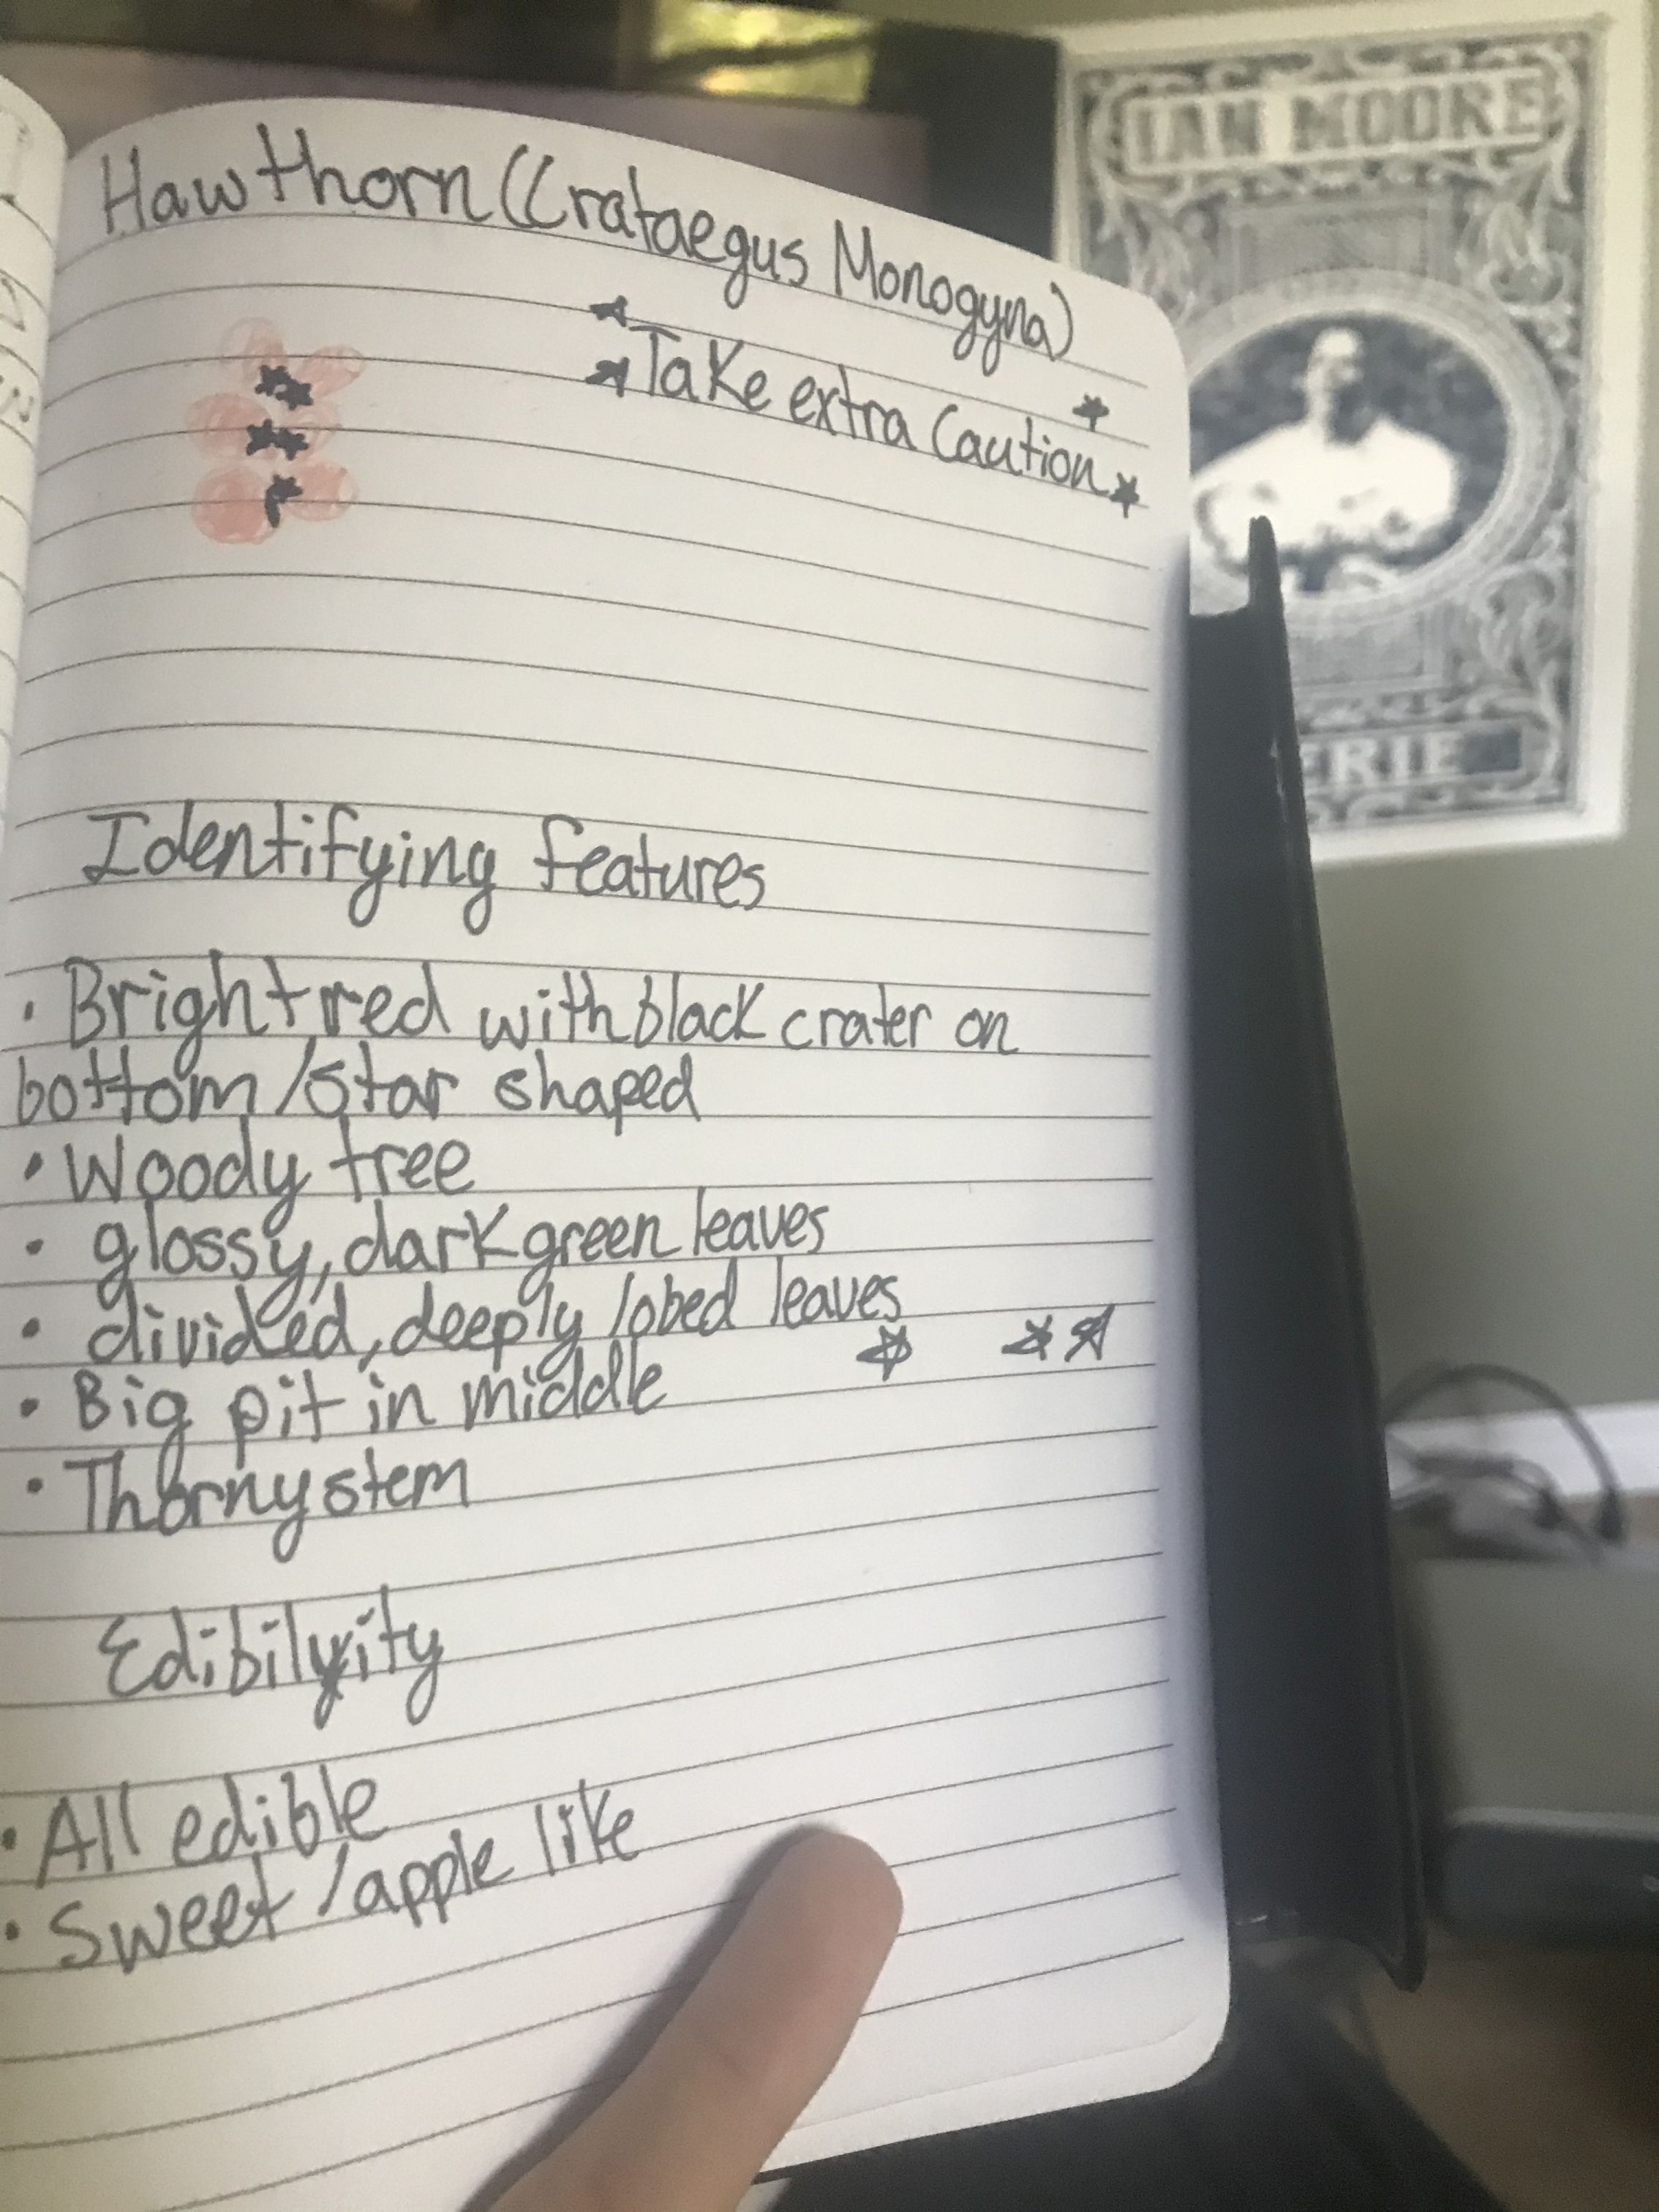 Hawthorn (Crataegus Monogyna)
Take extra Caution
Identifying features
• Bright red with black crater on
bottom/star shaped
• Woody tree
• glossy, dark green leaves
• divided, deeply lobed leaves
• Big pit in middle
• Thorny stem
Edibilyity
• All edible
• Sweet/apple like
IAN MOORE
ERIE